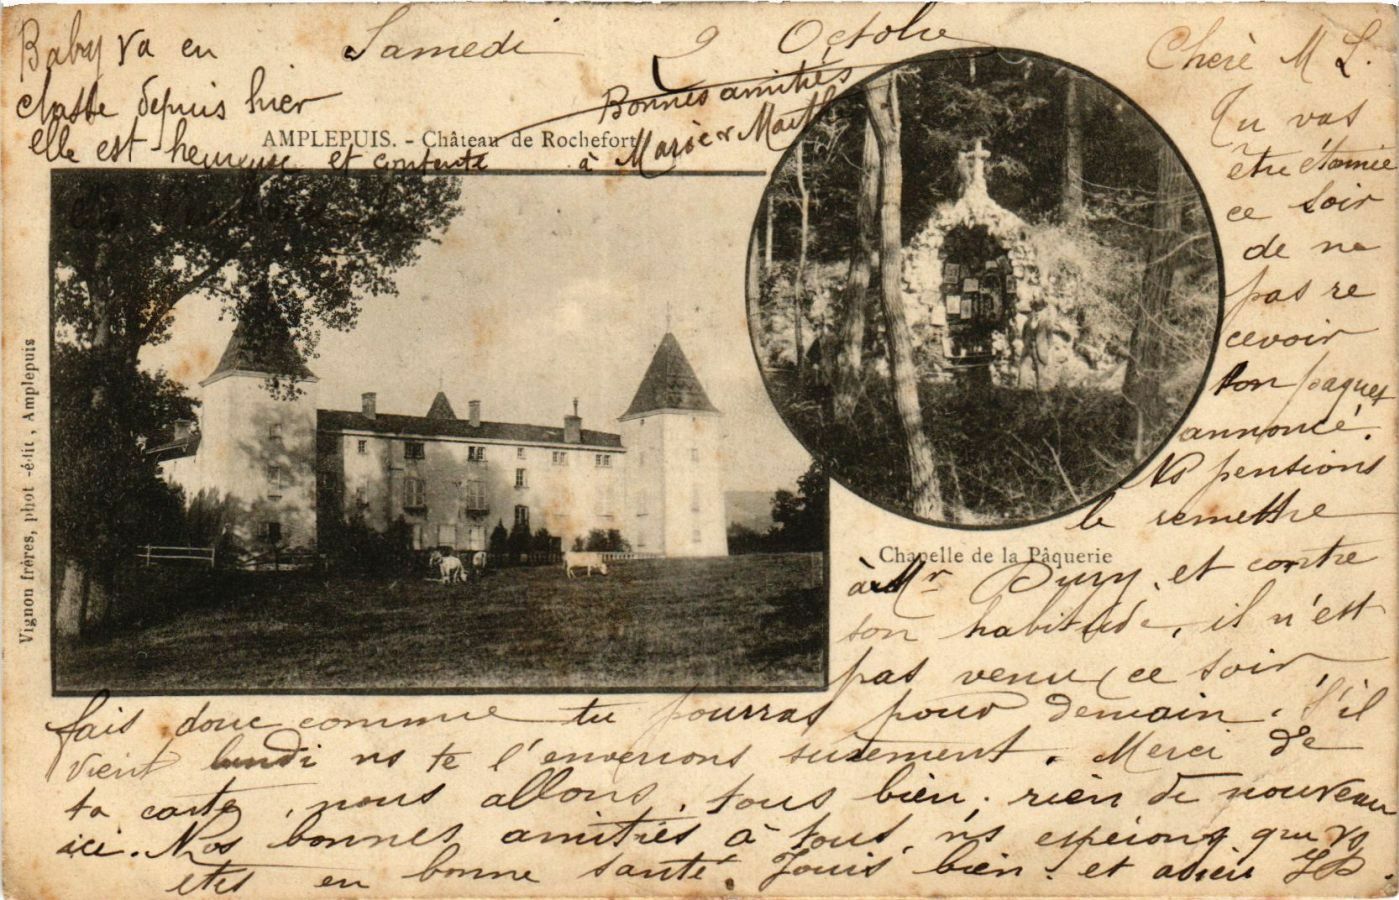 Samedi 2 Octobre
Baby va en
classe depuis hier
elle est heureuse et contente
Bonnes amitiés
à Marie et Marth
AMPLEPUIS. - Château de Rochefort
Chère M L.
Tu vas
être étonnée
ce soir
de ne
pas re
cevoir
ton paquet
annoncé.
Ns pensions
le remettre
Chapelle de la Pâquerie
à Mr Dury, et contre
son habitude, il n'est
pas venu ce soir,
fais donc comme tu pourras pour demain. S'il
vient lundi ns te l'enverrons surement. Merci de
ta carte, nous allons tous bien; rien de nouveau
ici. Nos bonnes amitiés à tous, ns espérons que vs
êtes en bonne santé. Jouis bien. et adieu
Vignon frères, phot-édit, Amplepuis